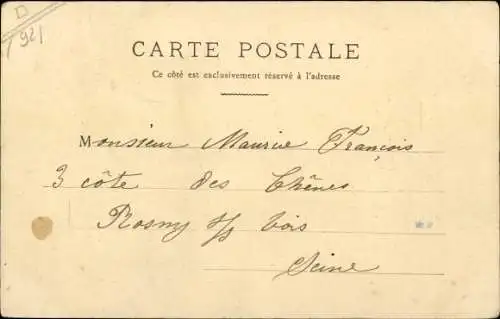 7921
CARTE POSTALE
Ce côté est exclusivement réservé à l'adresse
Monsieur Maurice François
3 côte des Chênes
Rosny s/s bois
Seine